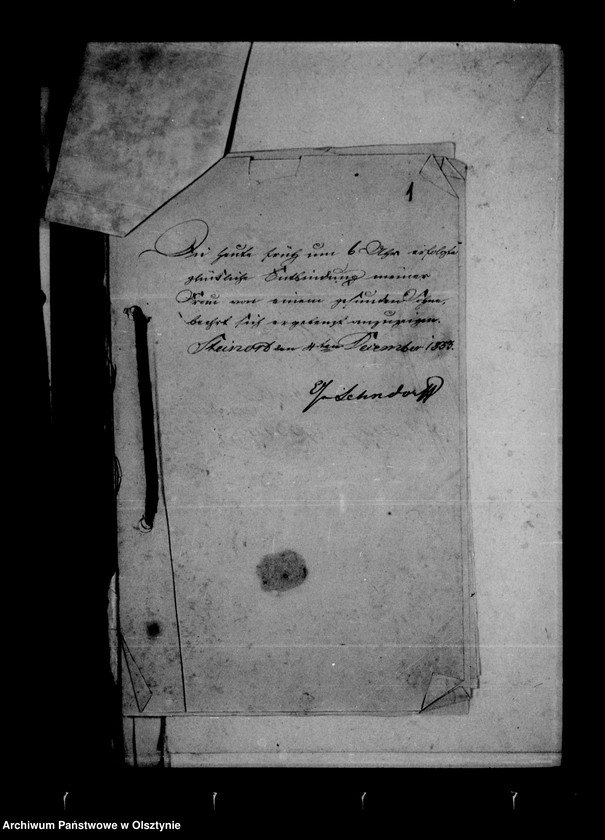 1
Die heute früh um 6 Uhr erfolgte
glückliche Entbindung meiner
Frau von einem gesunden Sohne,
beehrt sich ergebenst anzuzeigen.
Steinort den 4ten Dezember
Lehndorff
Archiwum Państwowe w Olsztynie